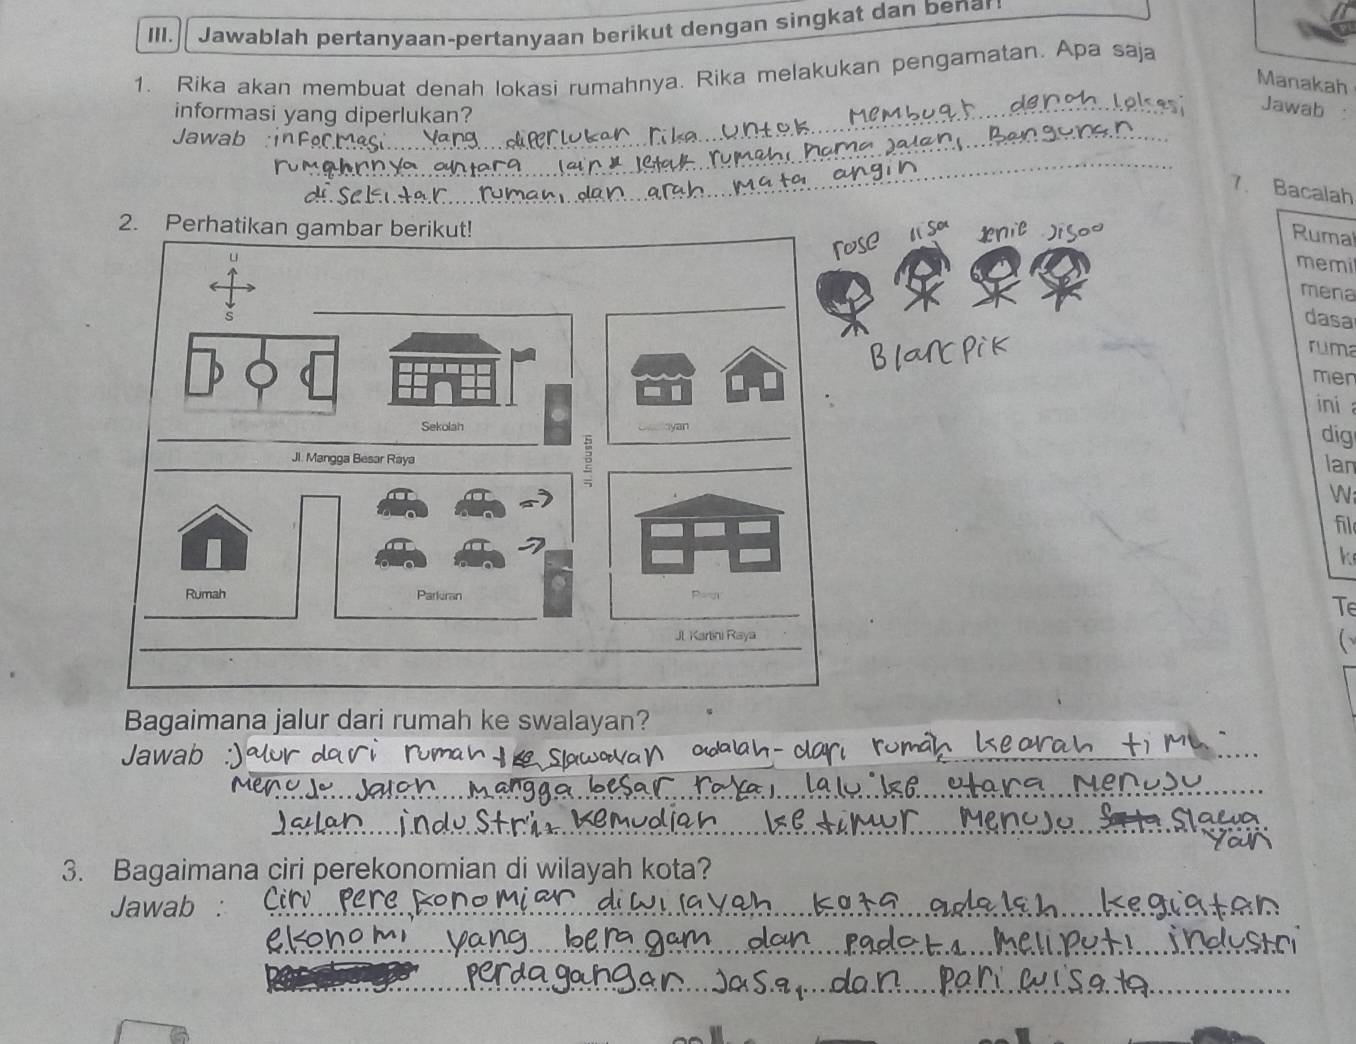 III. Jawablah pertanyaan-pertanyaan berikut dengan singkat dan benar!
1. Rika akan membuat denah lokasi rumahnya. Rika melakukan pengamatan. Apa saja
informasi yang diperlukan?
Jawab : informasi yang diperlukan rika untok membuat denah lokasi
rumahnnya antara lain letak rumah, nama jalan, Bangunan
di sekitar rumah, dan arah mata angin
2. Perhatikan gambar berikut!
rose lisa jenie jisoo
Blancpik
U
S
Sekolah
ayan
Jl. Mangga Besar Raya
Jl. Industri
Rumah
Parkiran
Jl. Kartini Raya
Bagaimana jalur dari rumah ke swalayan?
Jawab : Jalur dari rumah ke slawayan adalah dari rumah kearah timu
Menuju Jalan mangga besar raya, lalu ke utara menuju
Jalan industri kemudian ke timur menuju slawa
yan
3. Bagaimana ciri perekonomian di wilayah kota?
Jawab : Ciri perekonomian diwilayah kota adalah kegiatan
ekonomi yang beragam dan padat meliputi industri
perdagangan jasa, dan pariwisata
Manakah
Jawab :
7. Bacalah
Ruma
memi
mena
dasa
ruma
men
ini a
dig
lan
W
fil
ke
Te